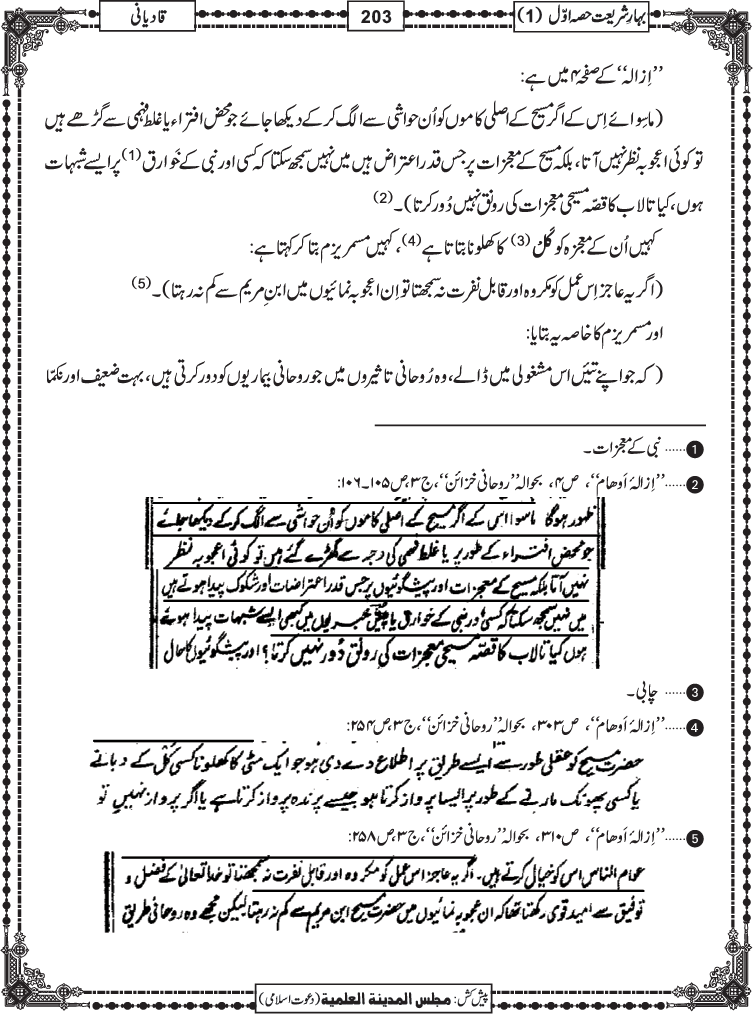 بہارِشریعت حصہ اوّل (1)
203
قادیانی
’’اِزالہ‘‘ کے صفحہ ۴ میں ہے:
(ماسِوائے اِس کے اگر مسیح کے اصلی کاموں کو اُن حواشی سے الگ کرکے دیکھا جائے جو محض افتراء یا غلط فہمی سے گڑھے ہیں
تو کوئی اعجوبہ نظر نہیں آتا، بلکہ مسیح کے معجزات پر جس قدر اعتراض ہیں میں نہیں سمجھ سکتا کہ کسی اور نبی کے خَوارق (1) پر ایسے شبہات
ہوں، کیا تالاب کا قصّہ مسیحی معجزات کی رونق نہیں دُور کرتا)۔ (2)
کہیں اُن کے معجزہ کو کَلْ (3) کا کھلونا بتاتا ہے (4)، کہیں مسمریزم بتا کر کہتا ہے:
(اگر یہ عاجز اِس عمل کو مکروہ اور قابلِ نفرت نہ سمجھتا تو اِن اعجوبہ نمائیوں میں ابنِ مریم سے کم نہ رہتا)۔ (5)
اور مسمریزم کا خاصہ یہ بتایا:
( کہ جو اپنے تئیں اس مشغولی میں ڈالے، وہ رُوحانی تاثیروں میں جو روحانی بیماریوں کو دور کرتی ہیں، بہت ضعیف اور نِکمّا
1 ...... نبی کے معجزات۔
2 ...... ’’اِزالۂ اَوھام‘‘، ص۴، بحوالہ ’’روحانی خزائن‘‘، ج۳، ص۱۰۵۔۱۰۶:
ظہور ہوگا ماسوا اس کے اگر مسیح کے اصلی کاموں کو اُن حواشی سے الگ کرکے دیکھا جائے
جو محض افتراء کے طور پر یا غلط فہمی کی وجہ سے گھڑے گئے ہیں تو کوئی اعجوبہ نظر
نہیں آتا بلکہ مسیح کے معجزات اور پیشگوئیوں پر جس قدر اعتراضات اور شکوک پیدا ہوتے ہیں
میں نہیں سمجھ سکتا کہ کسی اور نبی کے خوارق یا پیش خبریوں میں کبھی ایسے شبہات پیدا ہوئے
ہوں کیا تالاب کا قصّہ مسیحی معجزات کی رونق دُور نہیں کرتا؟ اور پیشگوئیوں کا حال
3 ...... چابی۔
4 ...... ’’اِزالۂ اَوھام‘‘، ص۳۰۳، بحوالہ ’’روحانی خزائن‘‘، ج۳، ص۲۵۴:
حضرت مسیح کو عقلی طور سے ایسے طریق پر اطلاع دے دی ہو جو ایک مٹی کا کھلونا کسی کل کے دبانے
یا کسی پھونک مارنے کے طور پر ایسا پرواز کرتا ہو جیسے پرندہ پرواز کرتا ہے یا اگر پرواز نہیں تو
5 ...... ’’اِزالۂ اَوھام‘‘، ص۳۱۰، بحوالہ ’’روحانی خزائن‘‘، ج۳، ص۲۵۸:
عوام الناس اس کو خیال کرتے ہیں۔ اگر یہ عاجز اس عمل کو مکروہ اور قابل نفرت نہ سمجھتا تو خدا تعالیٰ کے فضل و
توفیق سے امید قوی رکھتا تھا کہ ان عجوبہ نمائیوں میں حضرت مسیح ابن مریم سے کم نہ رہتا لیکن مجھے وہ روحانی طریق
پیش کش: مجلس المدینۃ العلمیۃ (دعوت اسلامی)